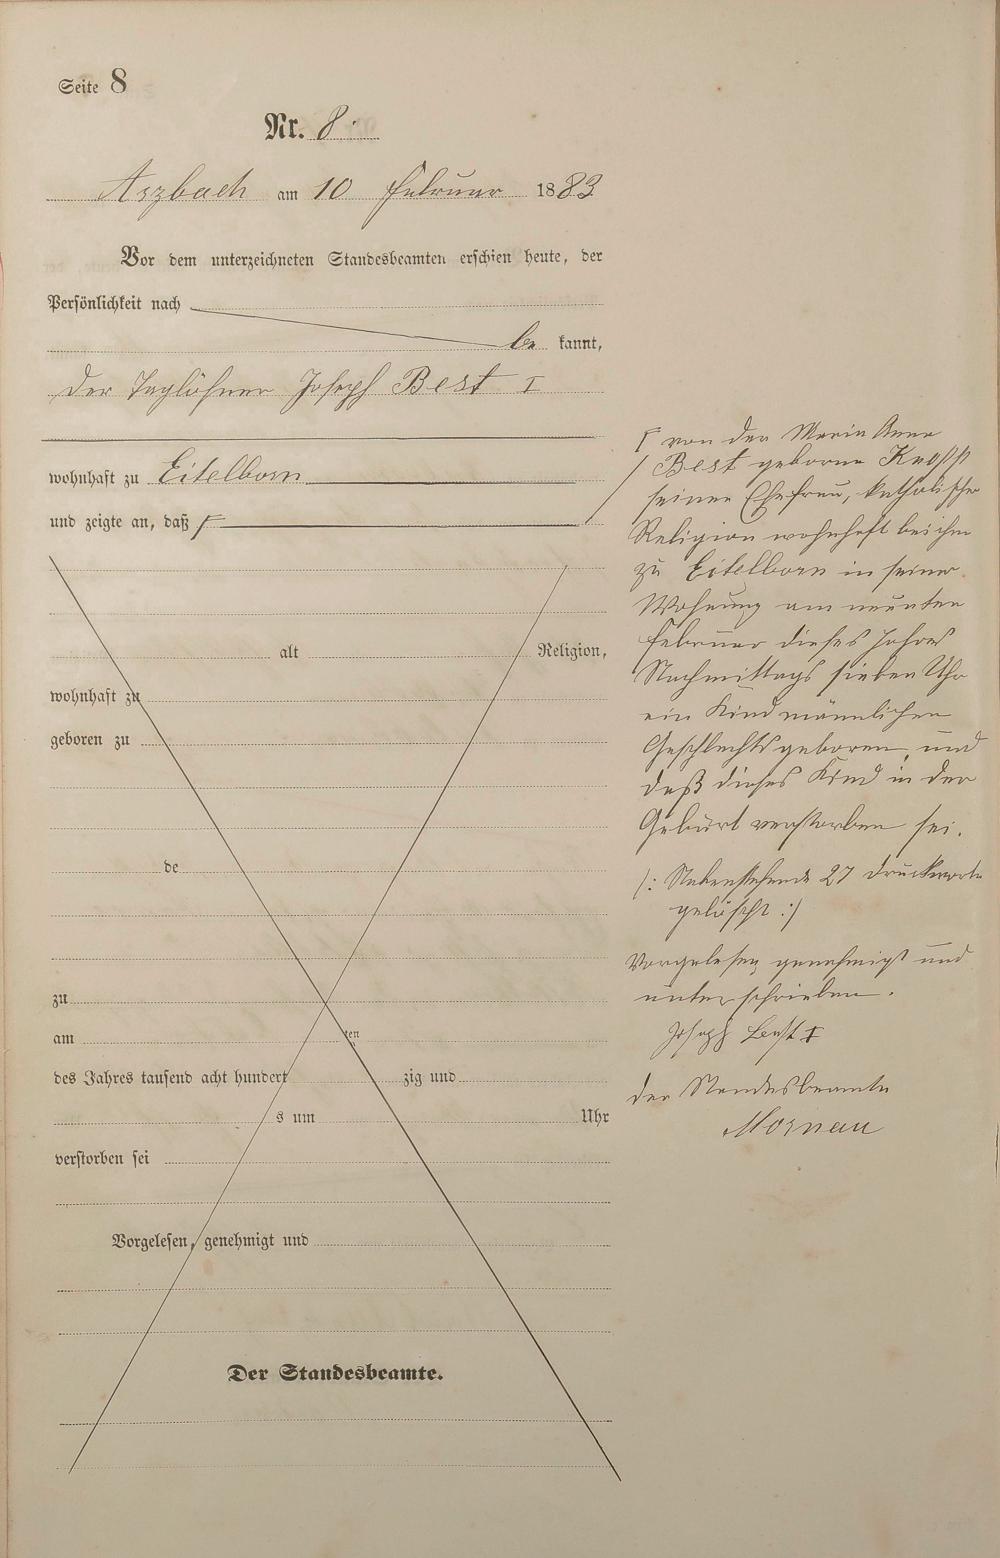 Seite 8
Nr. 8.
Arzbach am 10 Februar 1883
Vor dem unterzeichneten Standesbeamten erschien heute, der
Persönlichkeit nach
be kannt,
der Taglöhner Joseph Best I
wohnhaft zu Eitelborn
und zeigte an, daß
alt Religion,
wohnhaft zu
geboren zu
de
zu
am ten
des Jahres tausend acht hundert zig und
s um Uhr
verstorben sei
Vorgelesen, genehmigt und
Der Standesbeamte.
von der Maria Anna
Best geborne
seiner Ehefrau, katholischer
Religion wohnhaft bei ihm
zu Eitelborn in seiner
Wohnung am neunten
Februar dieses Jahres
Nachmittags sieben Uhr
ein Kind männlichen
Geschlechts geboren, und
daß dieses Kind in der
Geburt verstorben sei.
/: Nebenstehende 27 Druckworte
gelöscht :/
Vorgelesen genehmigt und
unterschrieben.
Joseph Best I
der Standesbeamte